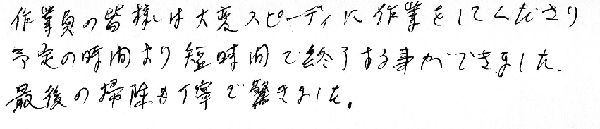 作業員の皆様は大変スピーディに作業をしてくださり
予定の時間より短時間で終了する事ができました。
最後の掃除も丁寧で驚きました。